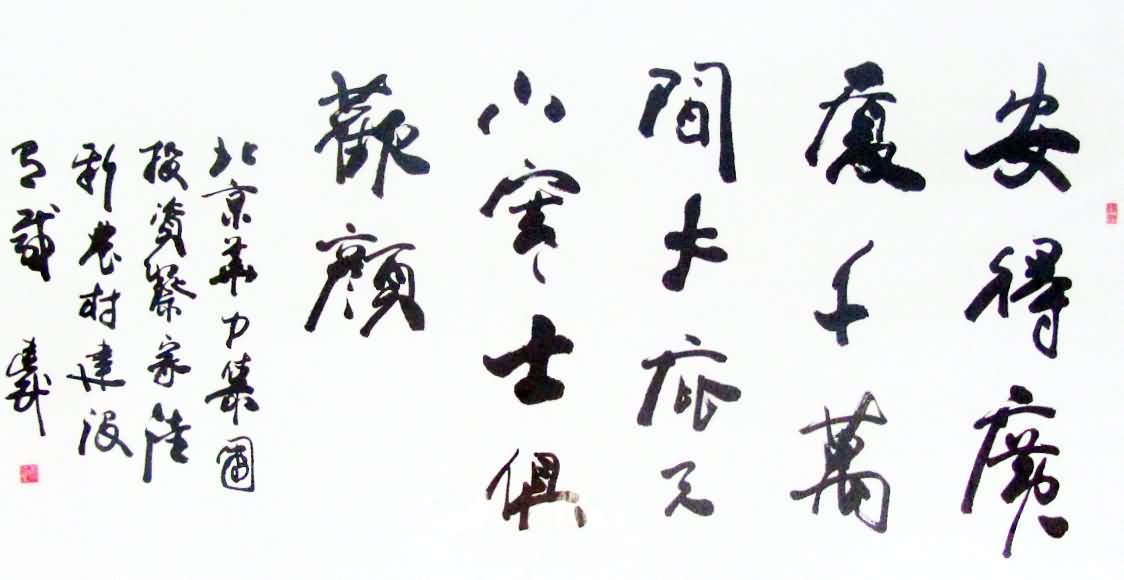 安得廣
廈千萬
間大庇天
下寒士俱
歡顏
北京華力集團
投資蔡家洼
新農村建設
有感